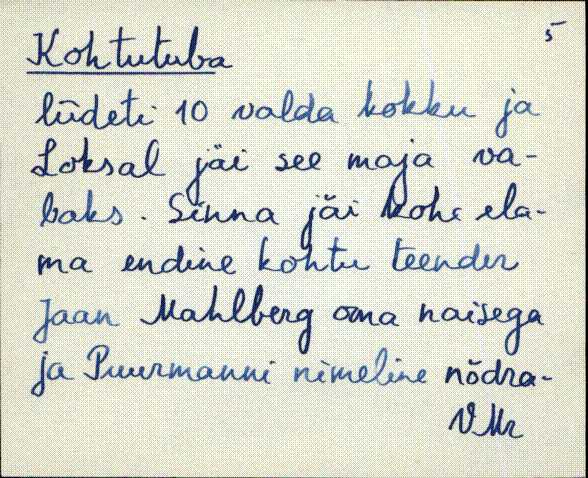 5
Kohtutuba
liideti 10 valda kokku ja
Loksal jäi see maja va-
baks. Sinna jäi kohe ela-
ma endine kohtu teender
Jaan Mahlberg oma naisega
ja Puurmanni nimeline nõdra-
VMr